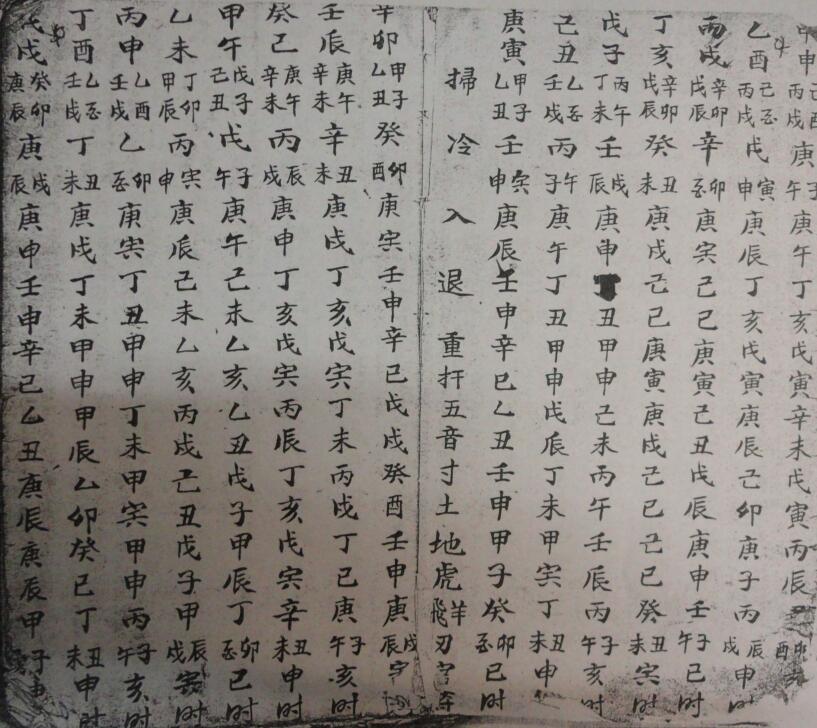 甲申丙戌庚子午庚午丁亥戊寅辛未戊寅丙辰
乙酉己酉丙戌戊寅申庚辰丁亥戊寅庚辰己卯庚子丙辰戌申时
丙戌辛卯戊辰辛卯酉庚寅己巳庚寅己丑戊辰庚申壬子午巳时
丁亥辛卯戊辰癸丑未庚戌己巳庚寅庚戌己巳己巳癸丑未寅时
戊子丙午丁未壬戌辰庚申丁丑甲申己未丙午壬辰丙子午亥时
己丑乙酉壬戌丙午子庚午丁丑甲申戊辰丁未甲寅丁丑未申
庚寅甲子乙丑壬寅申庚辰壬申辛巳乙丑壬申甲子癸卯酉巳时
掃冷入退重扞五音寸土地虎羊飛刃
辛卯甲子乙丑癸卯酉庚寅壬申辛巳戊戌癸酉壬申庚戌辰
壬辰庚午辛未辛丑未庚戌丁亥戊寅丁未丙戌丁巳庚子午亥时
癸巳庚午辛未丙辰戌庚申丁亥戊寅丙辰丁亥戊寅辛丑未申时
甲午戊子己丑戊子午庚午己未乙亥乙丑戊子甲辰丁卯酉巳时
乙未丁卯甲辰丙寅申庚辰己未乙亥丙戌己丑戊子甲辰戌寅时
丙申乙酉壬戌乙卯酉庚寅丁丑甲申丁未甲寅甲申丙子午亥时
丁酉乙酉壬戌丁丑未庚戌丁未甲申甲辰乙卯癸巳丁丑未申时
戊戌癸卯庚辰庚戌辰庚申壬申辛巳乙丑庚辰庚辰甲子